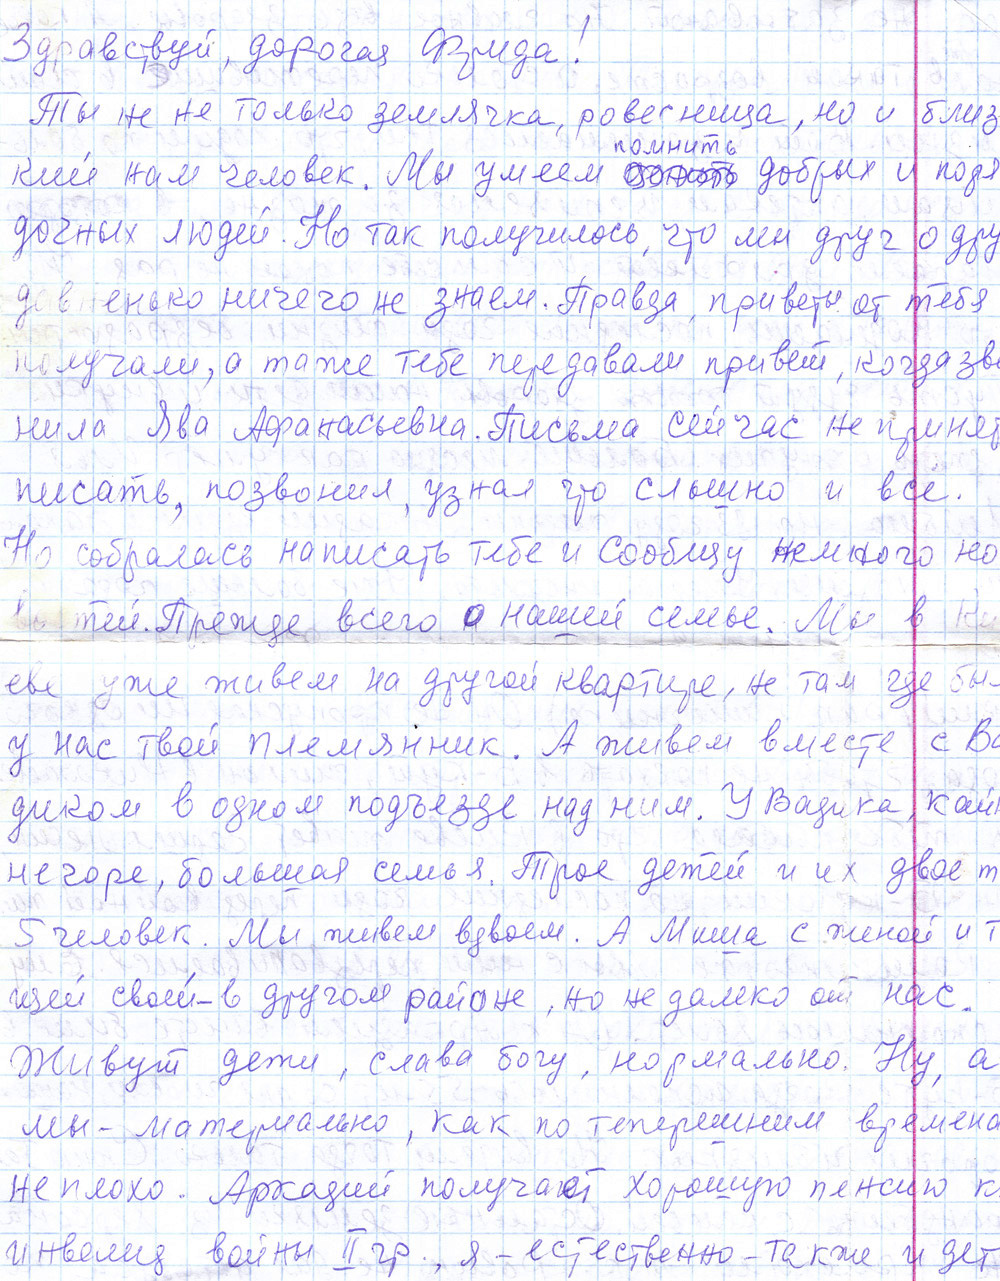 Здравствуй, дорогая Фрида!
Ты же не только землячка, ровесница, но и близ
кий нам человек. Мы умеем помнить добрых и поря
дочных людей. Но так получилось, что мы друг о дру
давненько ничего не знаем. Правда, приветы от тебя
получали, а также тебе передавали привет, когда зво
нила Ява Афанасьевна. Письма сейчас не принят
писать, позвонил, узнал что слышно и все.
Но собралась написать тебе и сообщу немного но
востей. Прежде всего о нашей семье. Мы в Ки
еве уже живем на другой квартире, не там где был
у нас твой племянник. А живем вместе с Ва
диком в одном подъезде над ним. У Вадика, кай
не горе, большая семья. Трое детей и их двое т
5 человек. Мы живем вдвоем. А Миша с женой и т
щей своей - в другом районе, но не далеко от нас.
Живут дети, слава богу, нормально. Ну, а
мы - материально, как по теперешним времена
не плохо. Аркадий получает хорошую пенсию к
инвалид войны II гр., я - естественно - также и дет